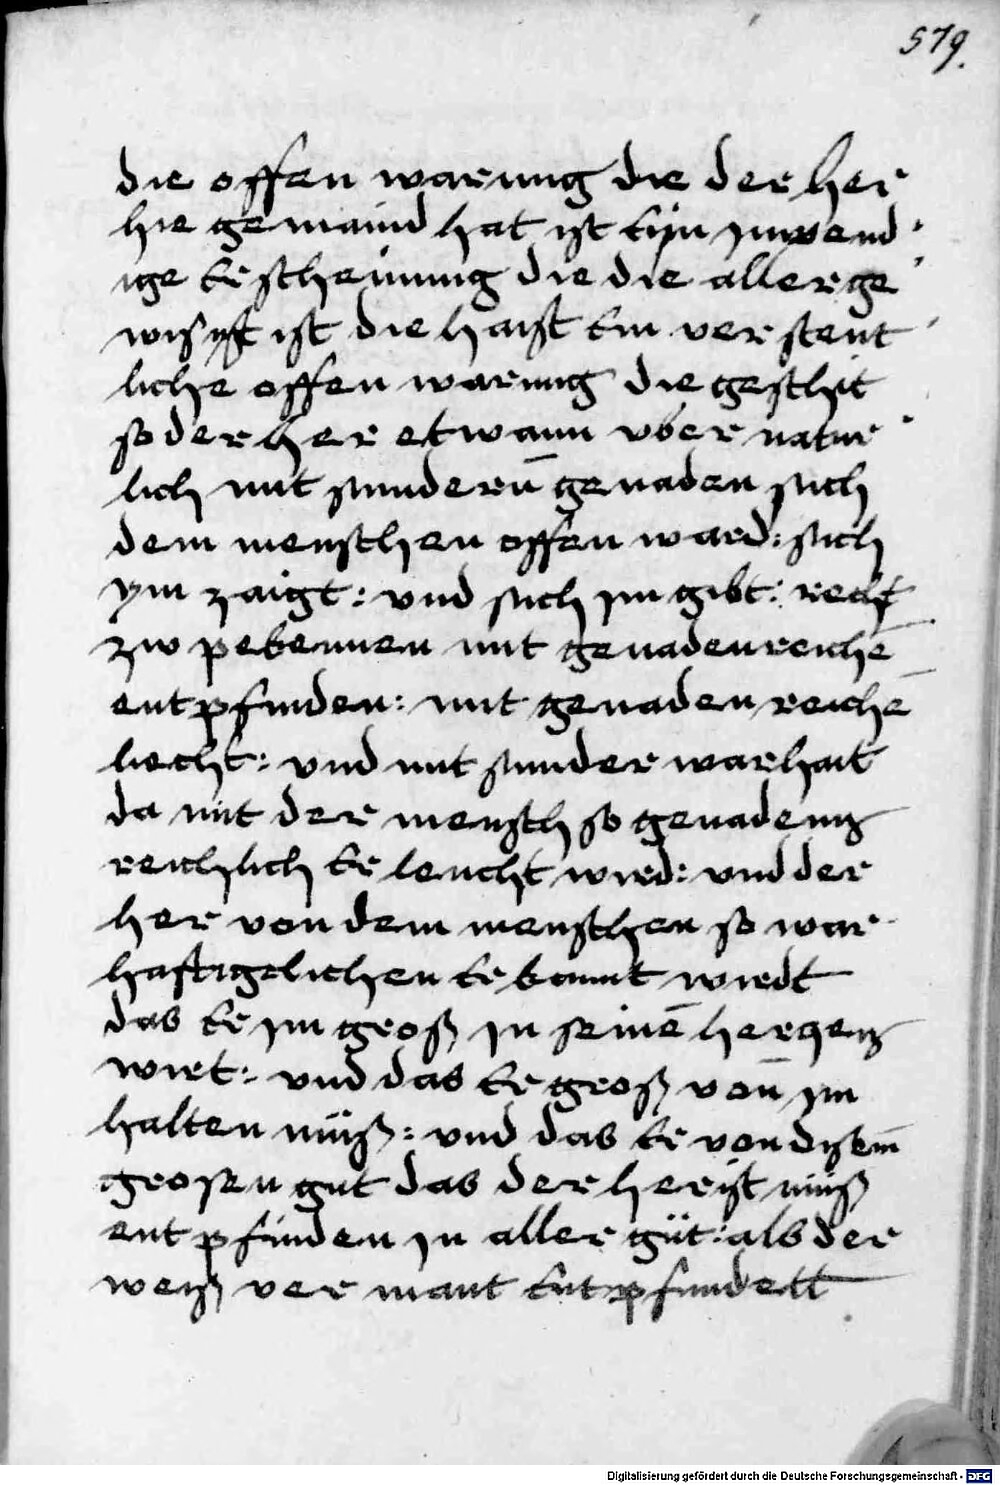 579.
die offen warung die der her
hie gemaind hat ist Eyn Jnwend
ige Erscheinung die die aller ge
wisyst ist die haist Ein verstent
liche offen warung die geschit
so der her etwann vber natur
lich mit sundern̄ genaden sich
dem menschen offen ward: sich
ym zaigt: vnd sich Jm gibt: recht
zw pekennen mit genadenreichē
entpfinden: mit genaden reichē
liecht: vnd mit sunder warhait
da mit der mensch so genadenn
reichlich Er leucht wird: vnd der
her von dem menschen so war
haftigelichen Er kannt wirdt
das Er Jm groß Jn seinē herczen
wirt: vnd das Er groß von̄ Jm
halten müß: vnd das Er von disem̄
grosen gut das der her ist müß
entpfinden Jn aller güt: als der
weiß ver mant Entpfindett
Digitalisierung gefördert durch die Deutsche Forschungsgemeinschaft - DFG